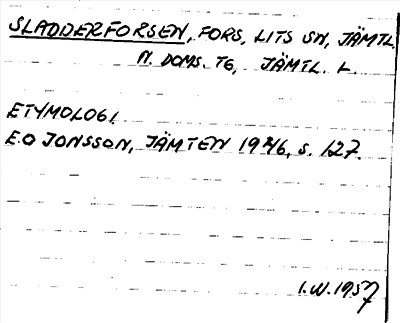 SLADDERFORSEN, FORS, LITS SN, JÄMTL.
N. DOMS. TG, JÄMTL. L.
ETYMOLOGI
E.O JONSSON, JÄMTEN 1946, s. 127.
I.W.1957